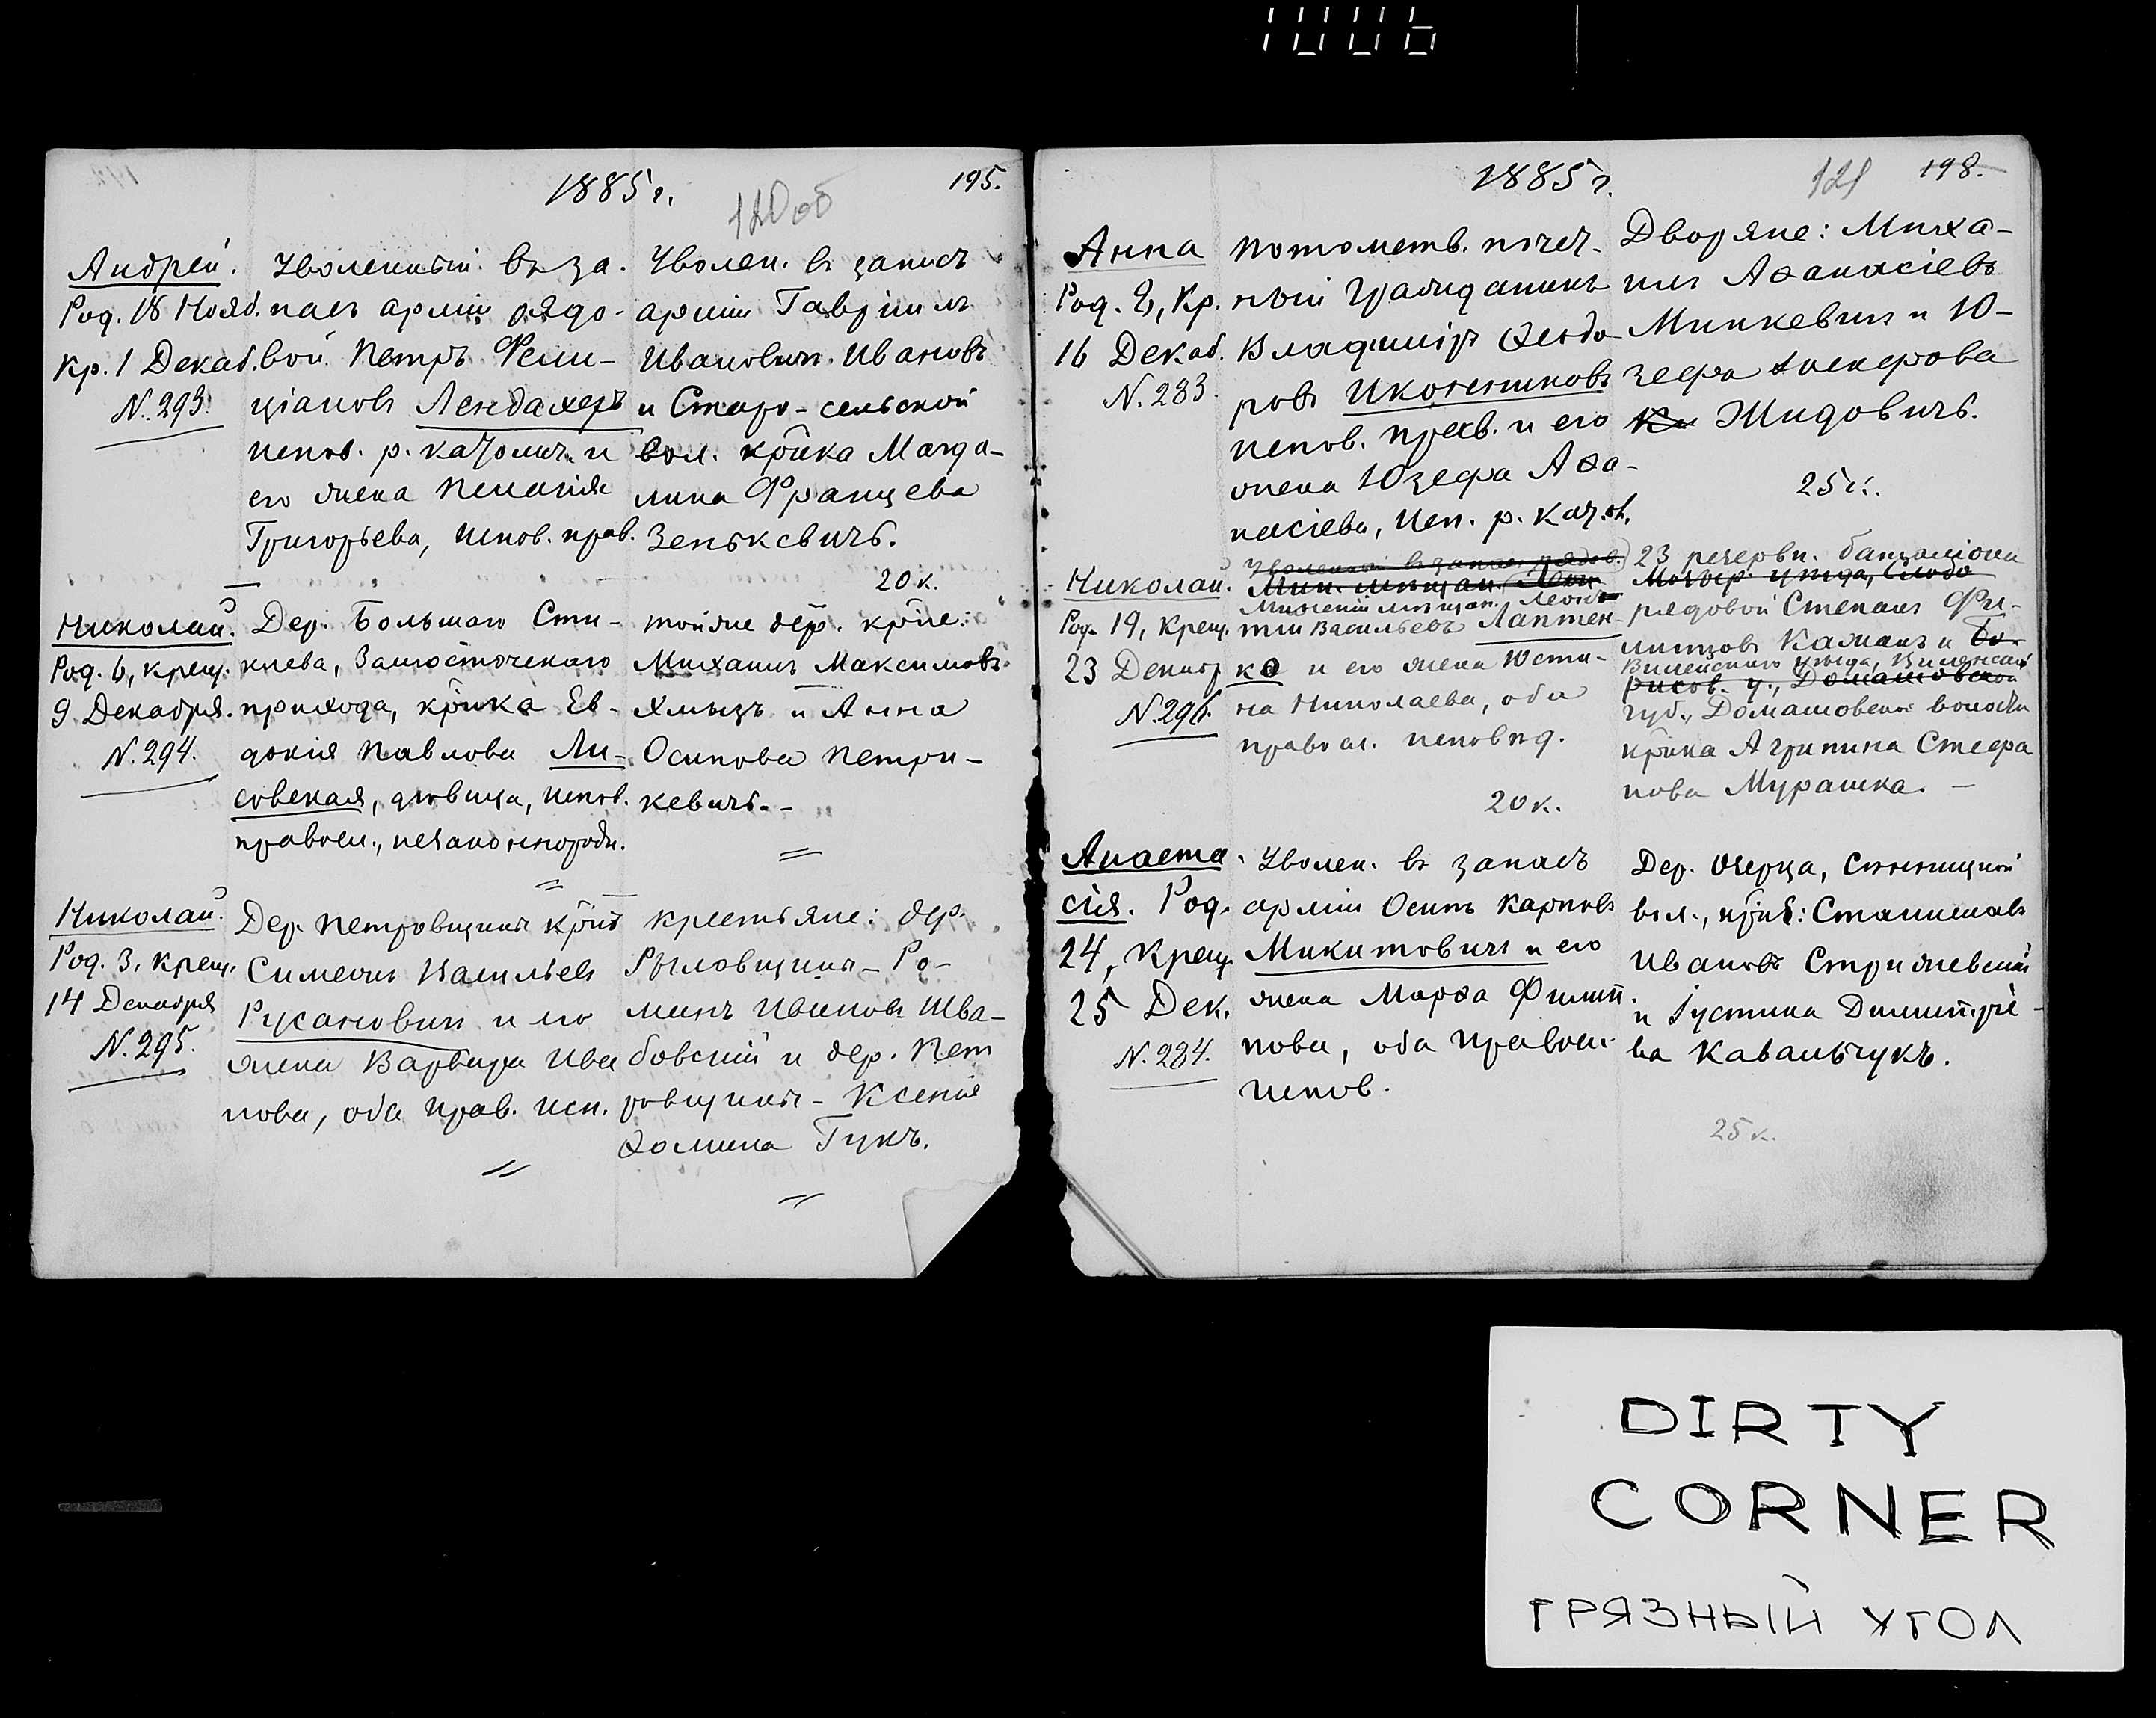 1885 г.
120 об
195.
Андрей.
Род. 18 Нояб.
Кр. 1 Декаб.
N. 293.
Уволенный въ за-
пасъ арміи рядо-
вой Петръ Фели-
ціановъ Лендахеръ
испов. р. катол. и
его жена Пелагія
Григорьева, испов. прав.
Уволен. въ запасъ
арміи Гавріилъ
Ивановичъ Ивановъ
и Старо-сельской
вол. крѣ-ка Магда-
лина Францева
Зеньксвичъ.
20 к.
Николай.
Род. 6, крещ.
9 Декабря.
N. 294.
Дер. Большаго Сти-
клева, Замосточскаго
прихода, кр-нка Ев-
докія Павлова Ли-
совская, дѣвица, испов.
правосл., незаконнорожд.
тойже дер. кр-не:
Михаилъ Максимовъ
Хмызъ и Анна
Осипова Петри-
кевичъ.-
Николай.
Род. 3, крещ.
14 Декабря
N. 295.
Дер. Петровщины кр-нъ
Симеонъ Васильевъ
Русановичъ и его
жена Варвара Ива
нова, оба прав. исп.
крестьяне: дер.
Рыловщины - Ро-
манъ Ивановъ Шва-
бовскій и дер. Пет
ровщины - Ксенія
Ѳомина Гукъ.
1885 г.
121
198.
Анна
Род. 8, Кр.
16 Декаб.
N. 283.
потомств. почет-
ный гражданинъ
Владиміръ Ѳеодо
ровъ Иконниковъ
испов. прав. и его
жена Юзефа Аѳа-
насіева, исп. р. кат.
Дворяне: Миха-
илъ Аѳанасіевъ
Минкевичъ и Ю-
зефа
Жидовичъ.
25 к.
Николай.
Род. 19, крещ.
23 Декабр
N. 296.
Уволенный въ запас рядов.
Мин. мѣщан. Леон
Минскій мѣщан. Леон
тій Васильевъ Лаптен-
ко и его жена Юсти-
на Николаева, оба
правосл. исповѣд.
20 к.
23 резервн. баталіона
Мозыр. уѣзда, Слобо
рядовой Степанъ Фи-
липовъ Кажанъ и Бо-
Вилейскаго уѣзда, Виленской
рисов. у., Домашовской
губ., Домашовской волости
кр-нка Агрипина Стефа
нова Мурашка. -
Анаста-
сія. Род.
24, крещ.
25 Дек.
N. 284.
Уволен. въ запасъ
арміи Осипъ Карповъ
Микитовичъ и его
жена Марѳа Филип
пова, оба правосл.
испов.
Дер. Озерца,
вол., кр-не: Станиславъ
Ивановъ Стрижевскій
и Іустина Димитріе-
ва Кавальчукъ.
25 к.
DIRTY
CORNER
ГРЯЗНЫЙ УГОЛ